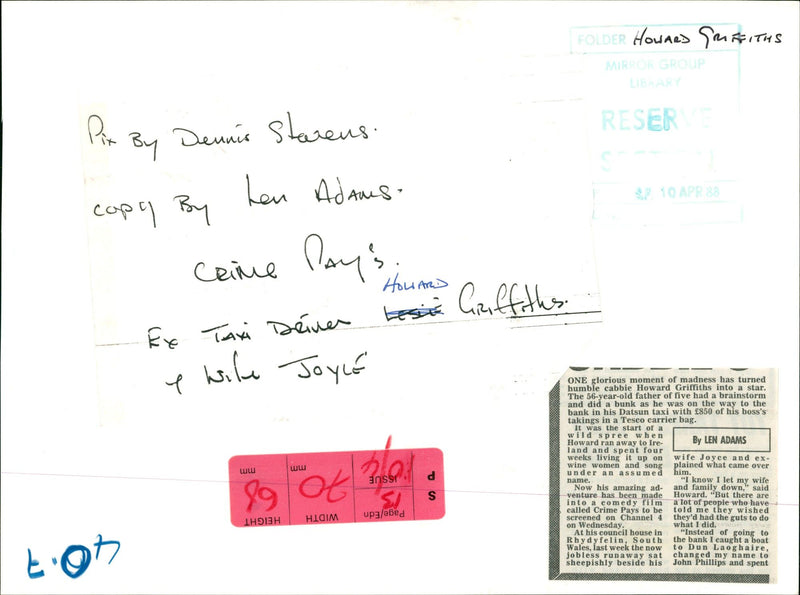 FOLDER HOWARD GRIFFITHS
MIRROR GROUP
LIBRARY
RESERVE
10 APR 88
Pix By Dennis Stevens.
copy By Len Adams.
CRIME PAY'S.
HOWARD
Ex Taxi Driver LESLIE Griffiths.
& Wife JOYCE
S P
Page/Edn ISSUE
13 10/4
WIDTH mm
70
HEIGHT mm
68
40.7
ONE glorious moment of madness has turned
humble cabbie Howard Griffiths into a star.
The 56-year-old father of five had a brainstorm
and did a bunk as he was on the way to the
bank in his Datsun taxi with £850 of his boss's
takings in a Tesco carrier bag.
It was the start of a
wild spree when
Howard ran away to Ire-
land and spent four
weeks living it up on
wine women and song
under an assumed
name.
Now his amazing ad-
venture has been made
into a comedy film
called Crime Pays to be
screened on Channel 4
on Wednesday.
At his council house in
Rhydyfelin, South
Wales, last week the now
jobless runaway sat
sheepishly beside his
By LEN ADAMS
wife Joyce and ex-
plained what came over
him.
"I know I let my wife
and family down," said
Howard. "But there are
a lot of people who have
told me they wished
they'd had the guts to do
what I did.
"Instead of going to
the bank I caught a boat
to Dun Laoghaire,
changed my name to
John Phillips and spent